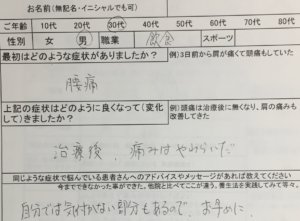 お名前(無記名・イニシャルでも可)
ご年齢 10代 20代 30代 40代 50代 60代 70代 80代
性別 女 男 職業 飲食 スポーツ
最初はどのような症状がありましたか? 例)3日前から肩が痛くて頭痛もしていた
腰痛
上記の症状はどのように良くなって(変化して)きましたか? 例)頭痛は治療後に無くなり、肩の痛みも改善してきた
治療後、痛みはやわらいだ
同じような症状で悩んでいる患者さんへのアドバイスやメッセージがあれば教えてください
今までできなかった事ができた。他院と比べてここが違う。養生法を実践してみて等々。
自分では気付かない部分もあるので、お早めに。